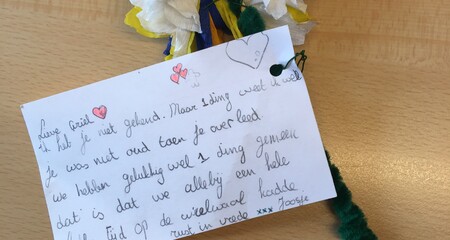 Lieve Ariël
ik heb je niet gekend. Maar 1 ding weet ik wel
Je was niet oud toen je overleed.
we hebben gelukkig wel 1 ding gemeen
dat is dat we allebij een hele
tijd op de wielwaal hadde
rust in vrede xxx Joosje